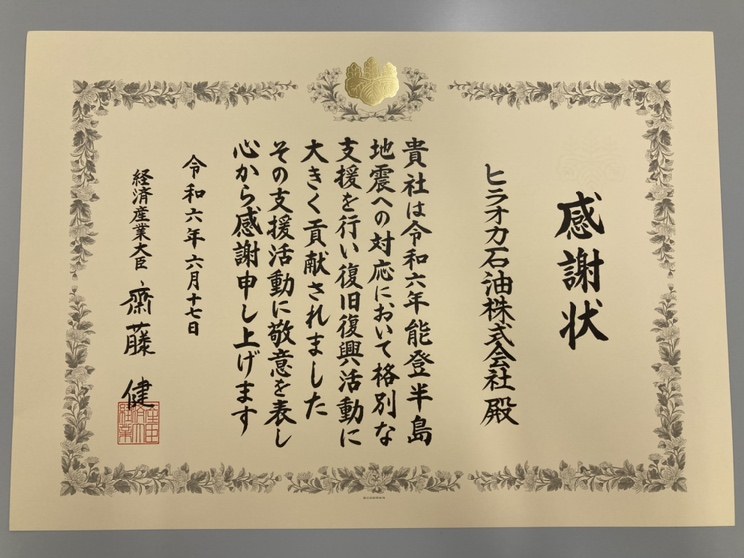 感謝状
ヒラオカ石油株式会社 殿
貴社は令和六年能登半島
地震への対応において格別な
支援を行い復旧復興活動に
大きく貢献されました
その支援活動に敬意を表し
心から感謝申し上げます
令和六年六月十七日
経済産業大臣 齋藤 健